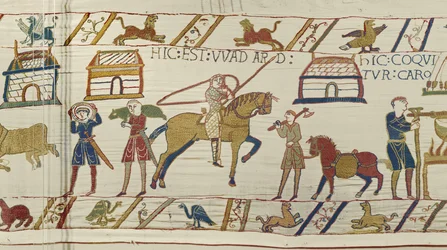 HIC:EST:VVAD ARD:
hIC:COQVI
TVR:CARO